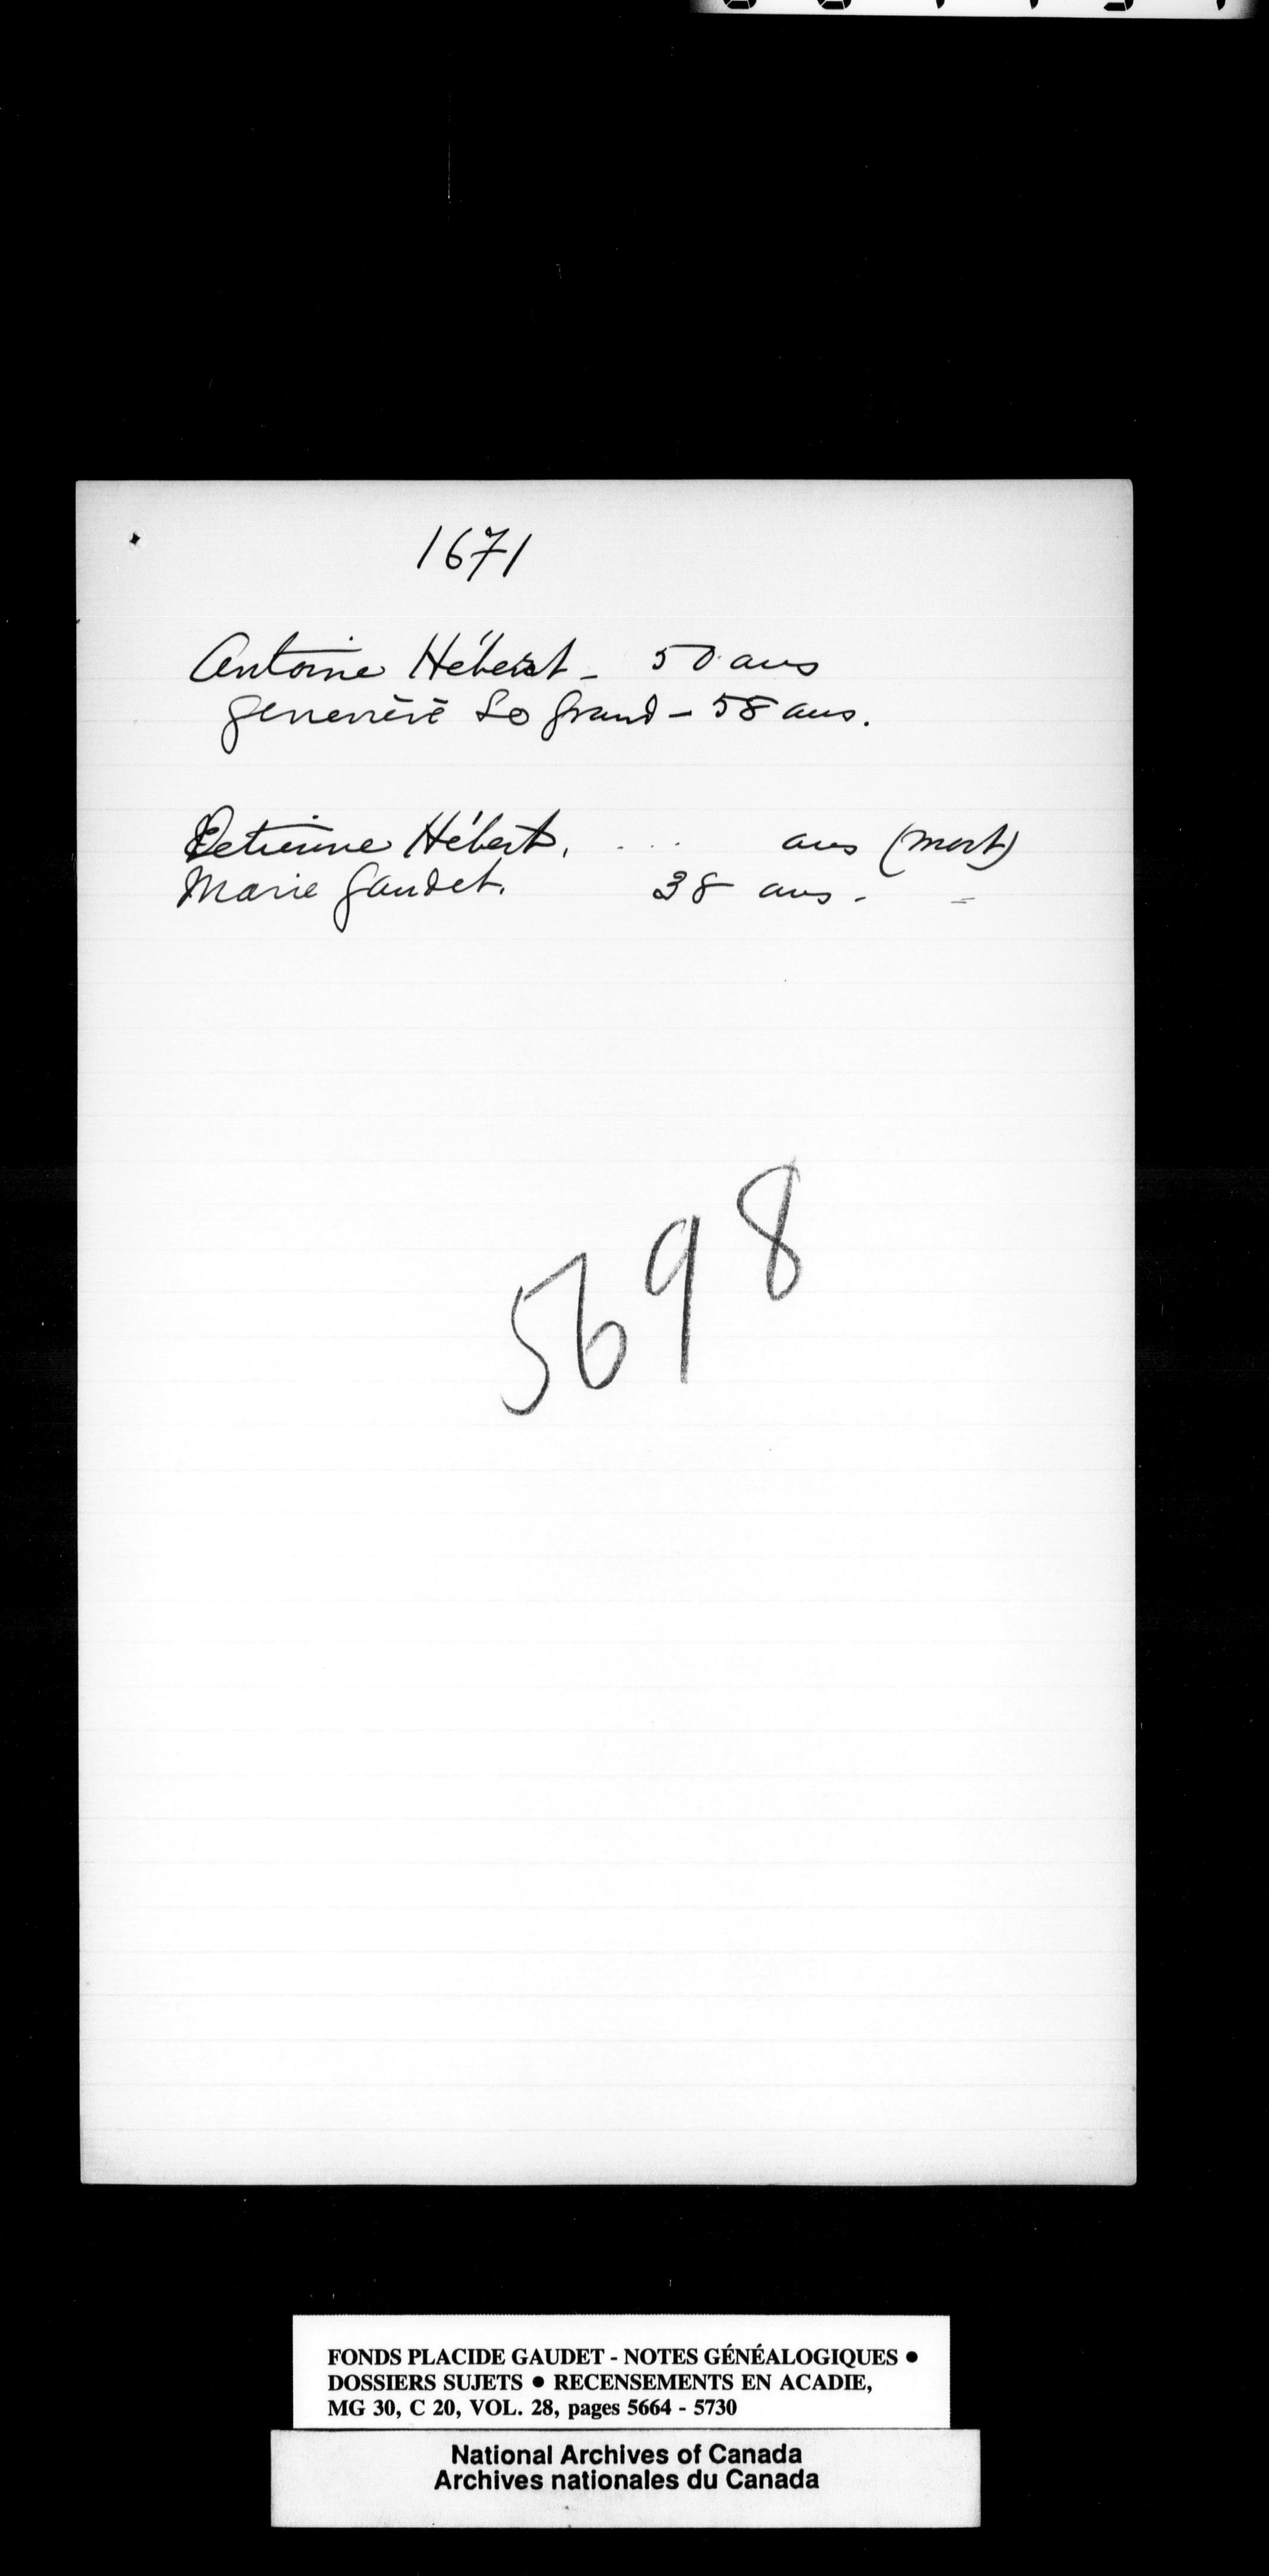 1671
Antoine Hébert - 50 ans
Geneviève Le Grand - 58 ans.
Etienne Hébert, ... ans (mort)
Marie Gaudet. 38 ans. =
5698
FONDS PLACIDE GAUDET - NOTES GÉNÉALOGIQUES ●
DOSSIERS SUJETS ● RECENSEMENTS EN ACADIE,
MG 30, C 20, VOL. 28, pages 5664 - 5730
National Archives of Canada
Archives nationales du Canada